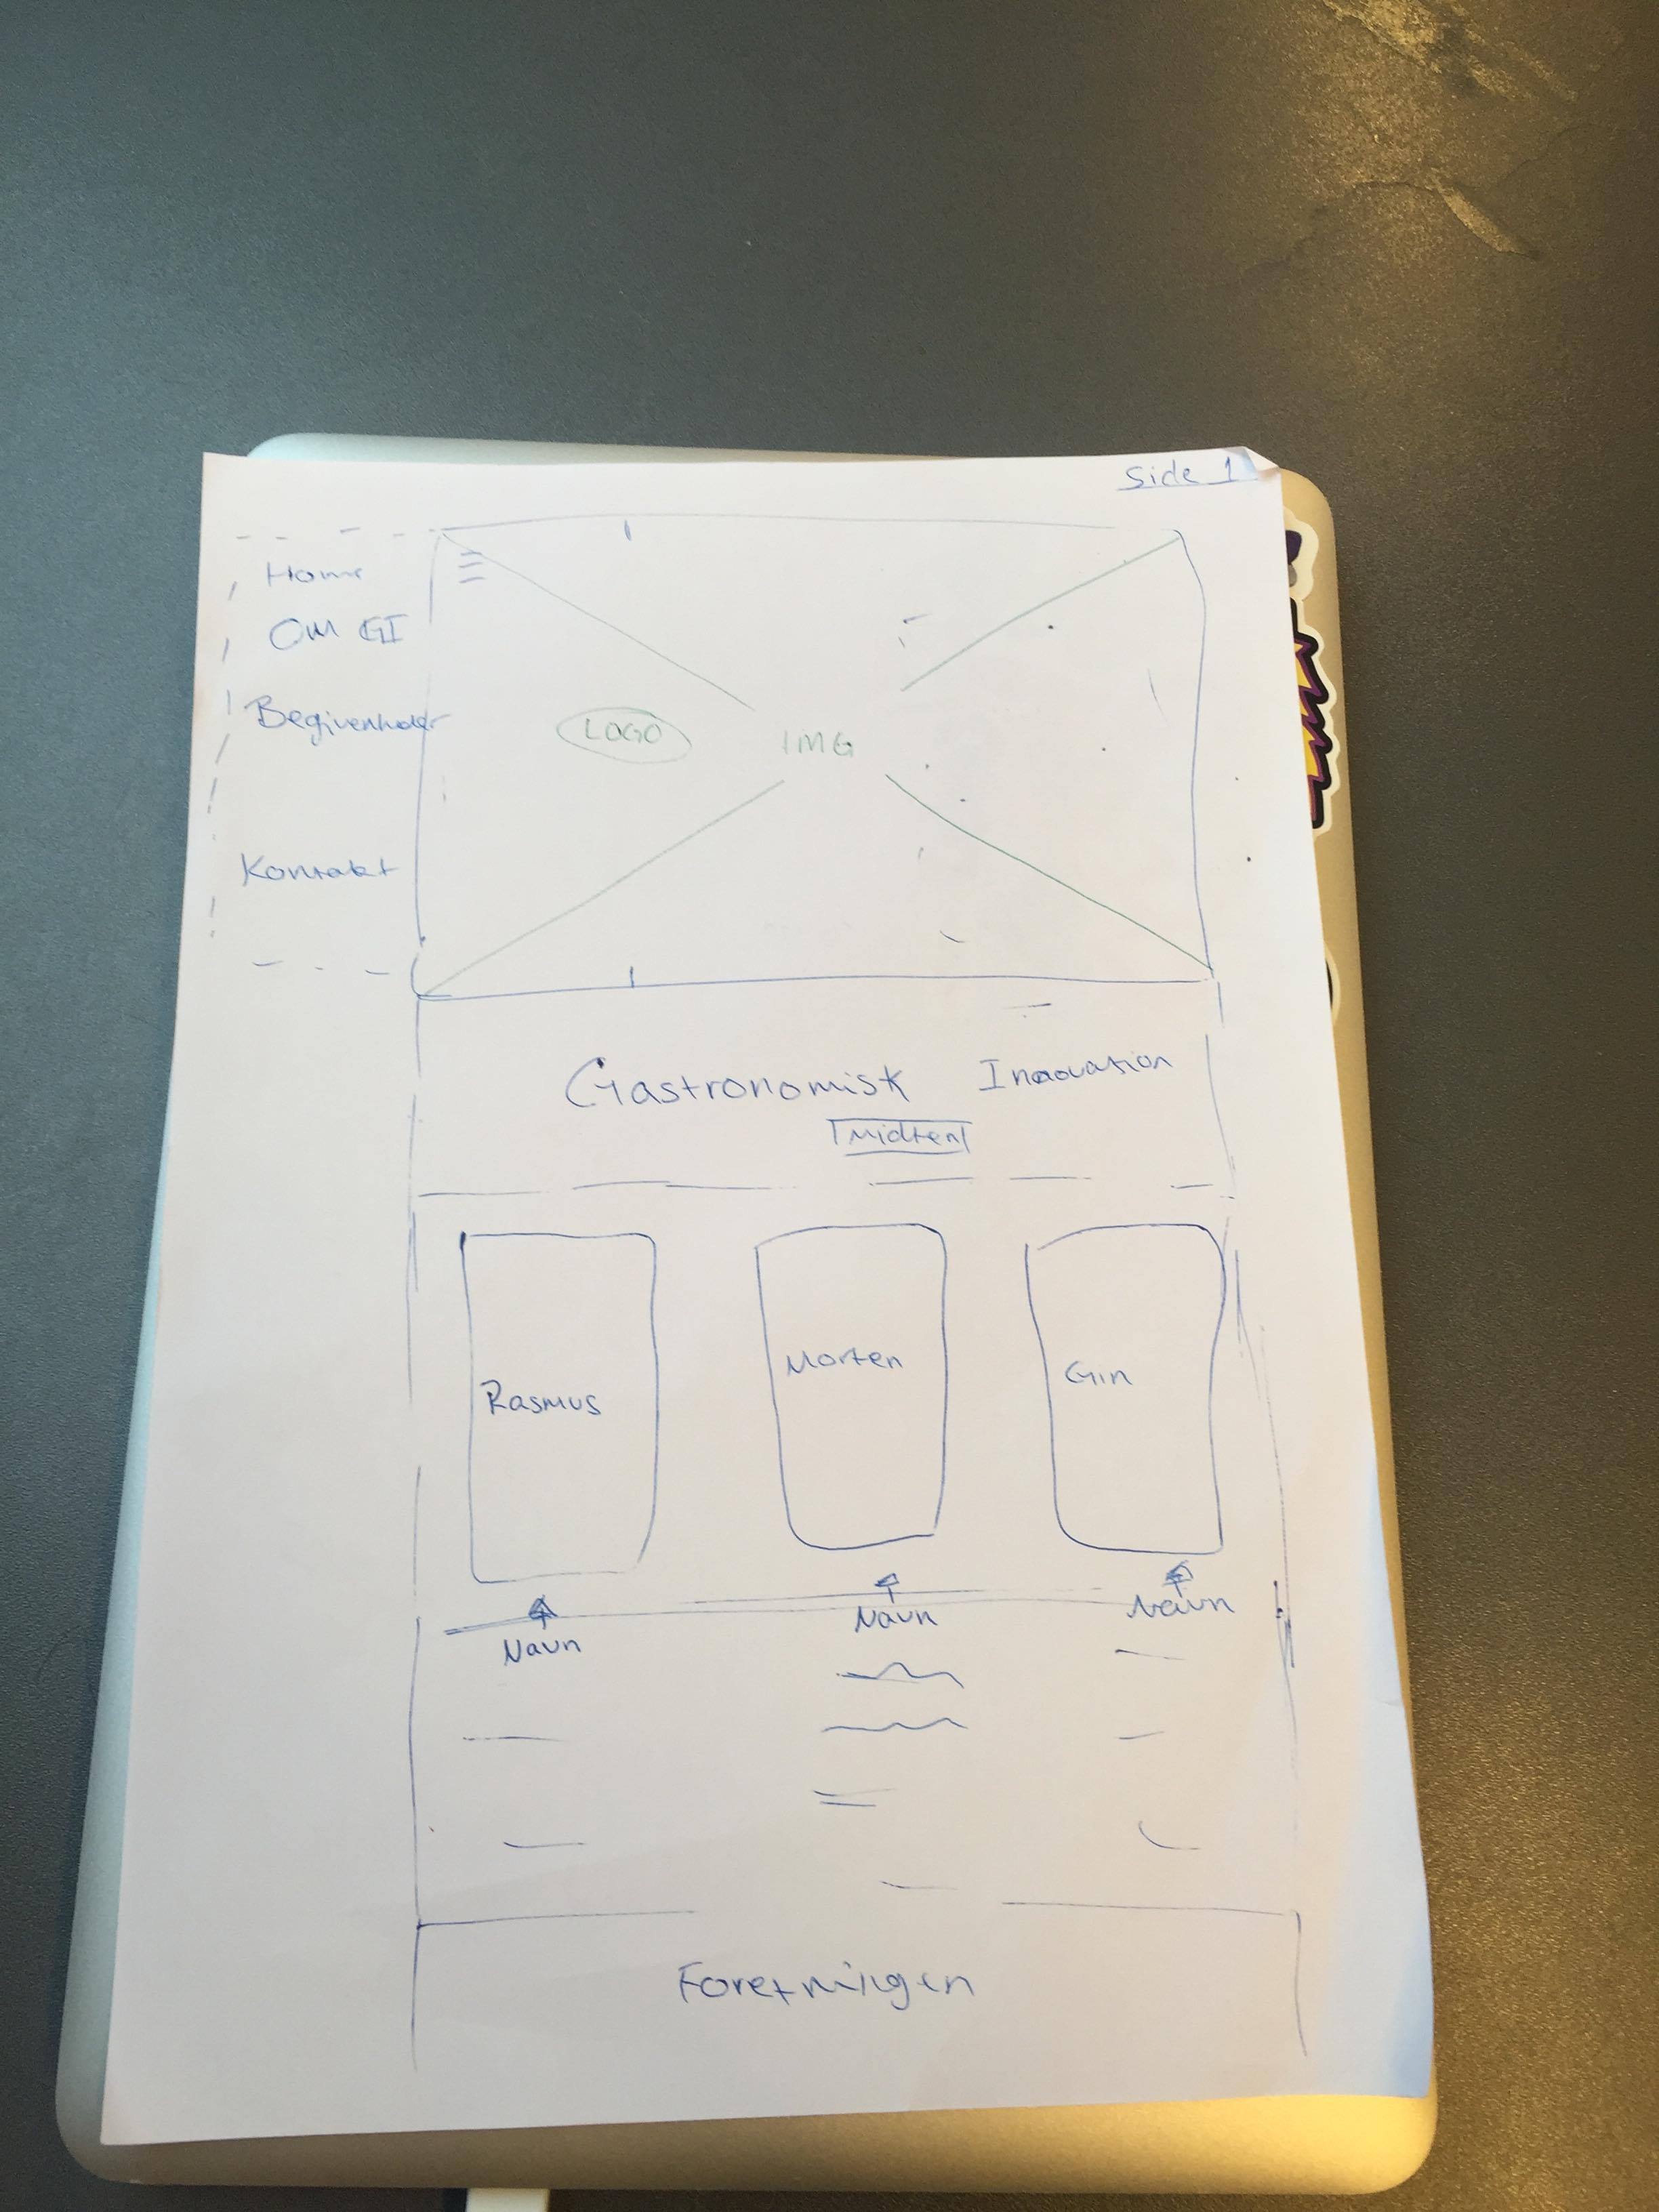 Side 1
Home
OM GI
Begivenheder
Kontakt
LOGO
IMG
Gastronomisk Innovation
Midten
Rasmus
Morten
Gin
Navn
Navn
Navn
Foretningen